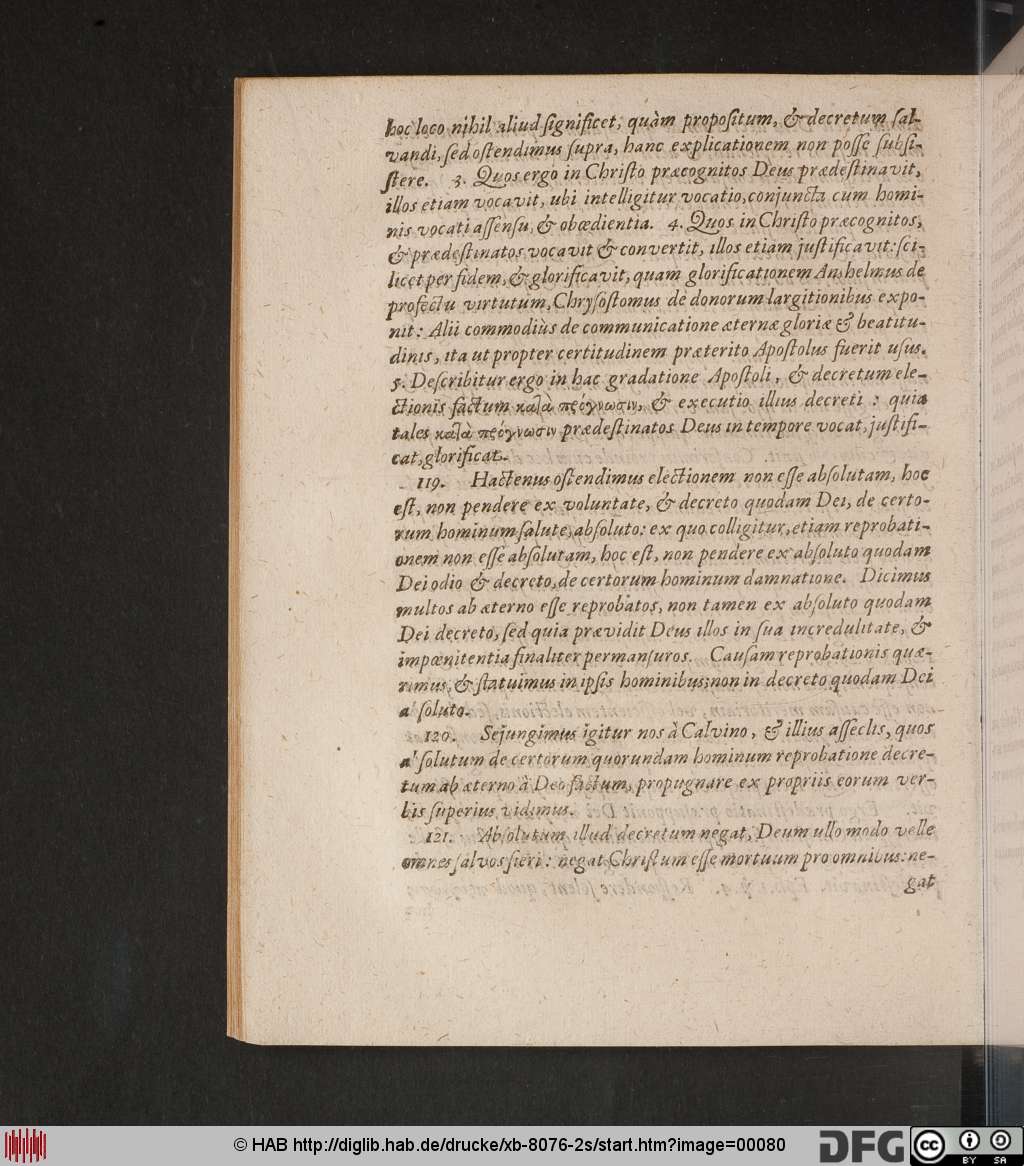 hoc loco nihil aliud significet, quàm propositum, & decretum sal-
vandi, sed ostendimus supra, hanc explicationem non posse subsi-
stere. 3. Quos ergo in Christo præcognitos Deus prædestinavit,
illos etiam vocavit, ubi intelligitur vocatio, conjuncta cum homi-
nis vocati assensu, & obœdientia. 4. Quos in Christo præcognitos,
& prædestinatos vocavit & convertit, illos etiam justificavit: sci-
licet per fidem, & glorificavit, quam glorificationem Anshelmus de
profectu virtutum, Chrysostomus de donorum largitionibus expo-
nit: Alii commodiùs de communicatione æternæ gloriæ & beatitu-
dinis, ita ut propter certitudinem præterito Apostolus fuerit usus.
5. Describitur ergo in hac gradatione Apostoli, & decretum ele-
ctionis factum καϊὰ πρόγνωσιν, & executio illius decreti: quia
tales καϊὰ πρόγνωσιν prædestinatos Deus in tempore vocat, justifi-
cat, glorificat.
119. Hactenus ostendimus electionem non esse absolutam, hoc
est, non pendere ex voluntate, & decreto quodam Dei, de certo-
rum hominum salute, absoluto: ex quo colligitur, etiam reprobati-
onem non esse absolutam, hoc est, non pendere ex absoluto quodam
Dei odio & decreto, de certorum hominum damnatione. Dicimus
multos ab æterno esse reprobatos, non tamen ex absoluto quodam
Dei decreto, sed quia prævidit Deus illos in sua incredulitate, &
impœnitentia finaliter permansuros. Causam reprobationis quæ-
rimus, & statuimus in ipsis hominibus; non in decreto quodam Dei
absoluto.
120. Sejungimus igitur nos à Calvino, & illius asseclis, quos
absolutum de certorum quorundam hominum reprobatione decre-
tum ab æterno à Deo factum, propugnare ex propriis eorum ver-
bis superius vidimus.
121. Absolutum illud decretum negat, Deum ullo modo velle
omnes salvos fieri: negat Christum esse mortuum pro omnibus: ne-
gat
© HAB http://diglib.hab.de/drucke/xb-8076-2s/start.htm?image=00080
DFG
cc BY SA